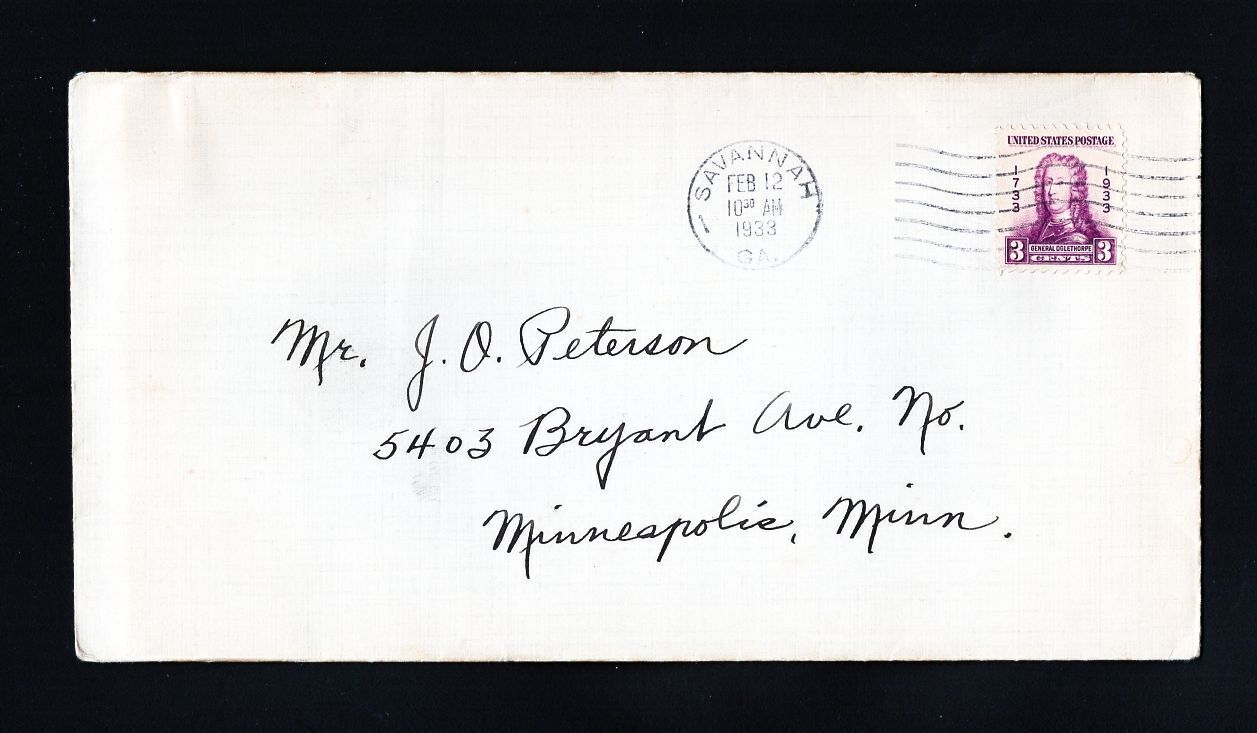 SAVANNAH
FEB 12
10³⁰ AM
1933
GA.
UNITED STATES POSTAGE
1733
1933
3 GENERAL OGLETHORPE 3
CENTS
Mr. J. O. Peterson
5403 Bryant Ave. No.
Minneapolis, Minn.